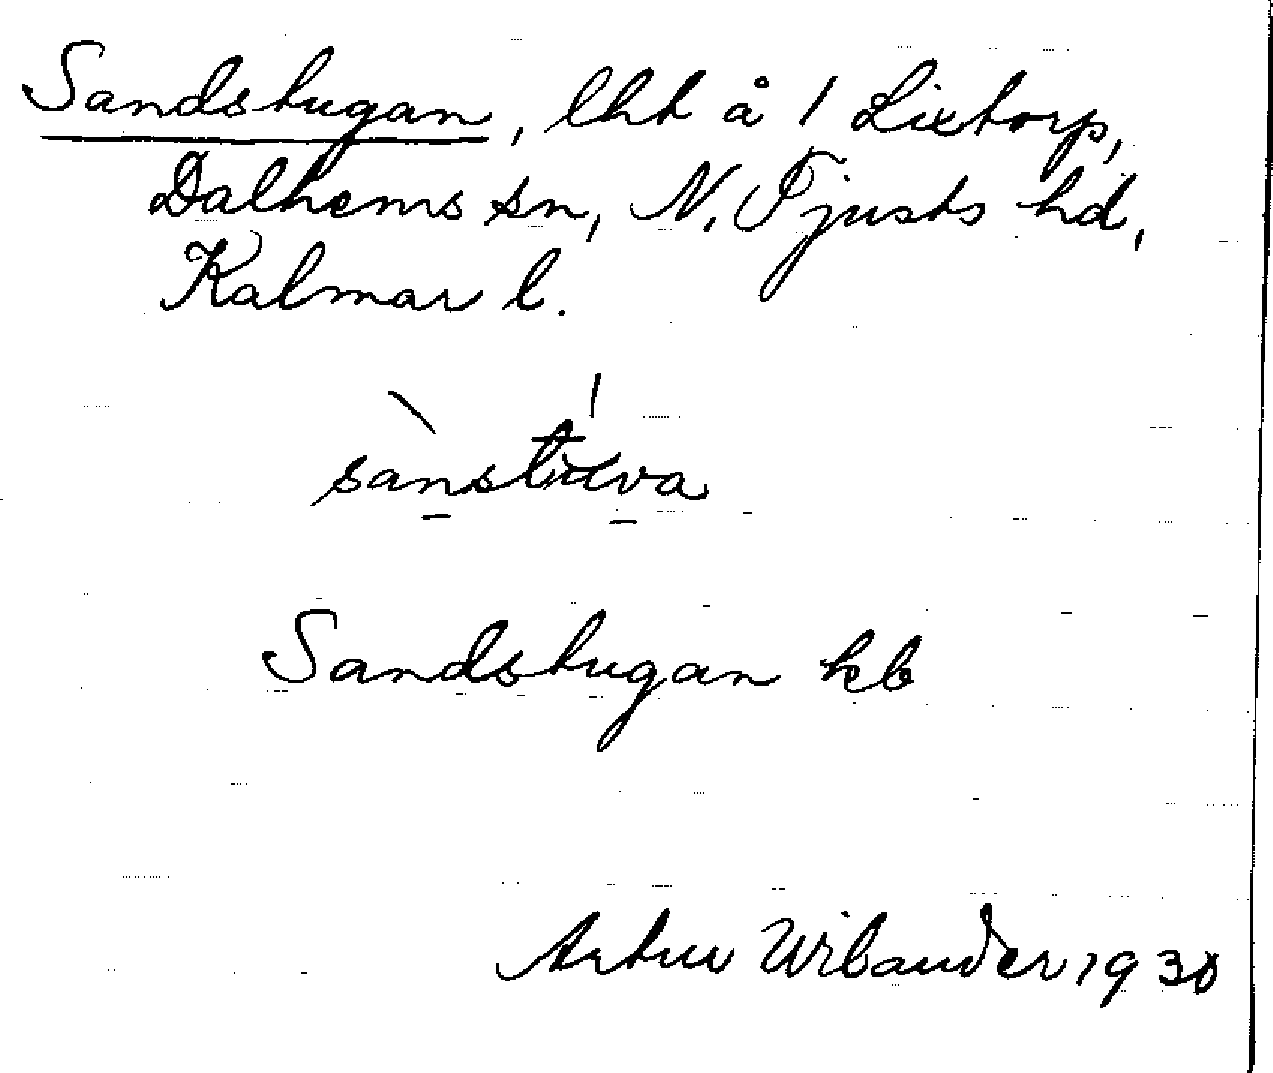 Sandstugan, lht å 1 Lixtorp,
Dalhems sn, N. Tjusts hd,
Kalmar l.
sanstuva
Sandstugan kb
Artur Wilander 1930